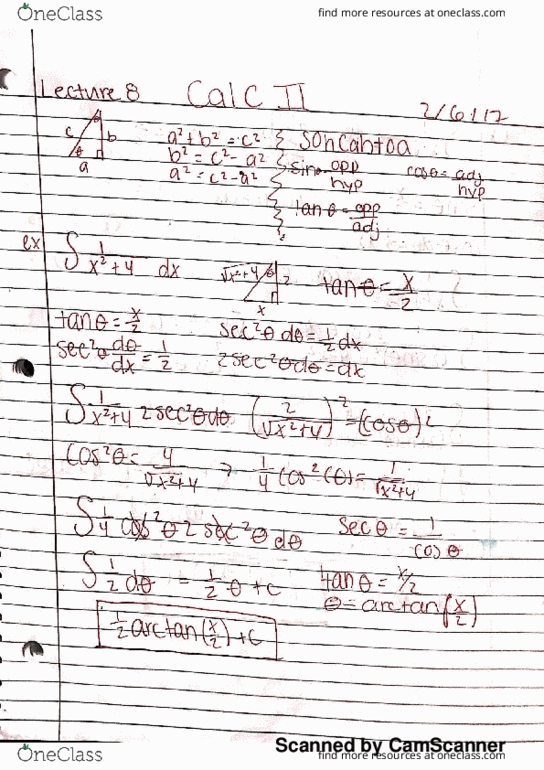 OneClass find more resources at oneclass.com
Lecture 8 Calc II 2/6/17
c b a θ
a² + b² = c² } sohcahtoa
b² = c² - a² sinθ = opp/hyp cosθ = adj/hyp
a² = c² - a² tanθ = opp/adj
ex ∫ 1/x²+4 dx √x²+4 θ 2 x tanθ = x/2
tanθ = x/2 sec²θ dθ = 1/2 dx
sec²θ dθ/dx = 1/2 2sec²θdθ = dx
∫ 1/x²+4 2sec²θdθ (2/√x²+4)² = (cosθ)²
cos²θ = 4/√x²+4 → 1/4 cos²(θ) = 1/√x²+4
∫ 1/4 cos²θ 2 sec²θ dθ secθ = 1/cos θ
∫ 1/2 dθ = 1/2 θ + c tanθ = x/2
θ = arctan(x/2)
1/2 arctan(x/2) + c
Scanned by CamScanner
OneClass find more resources at oneclass.com